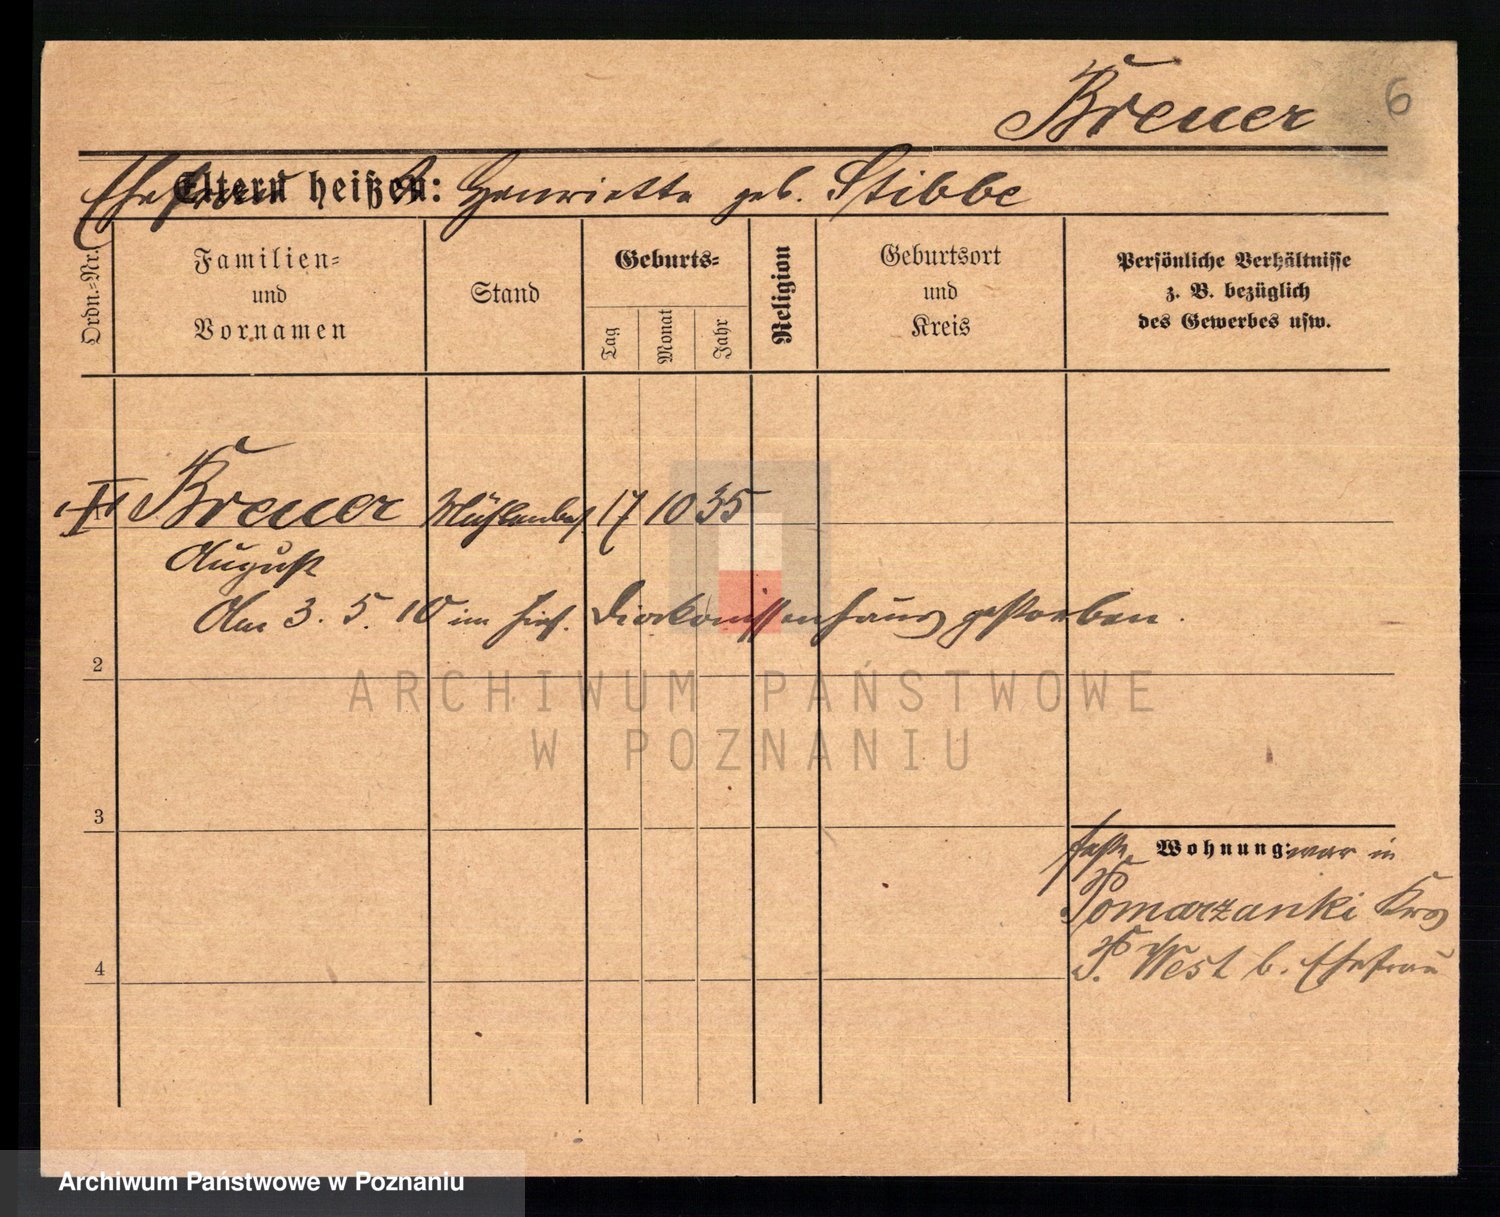 Breuer
6
Eltern heißen:
Ehefrau Henriette geb. Stibbe
Ordn.-Nr.
Familien=
und
Vornamen
Stand
Geburts=
Tag
Monat
Jahr
Religion
Geburtsort
und
Kreis
Persönliche Verhältnisse
z. B. bezüglich
des Gewerbes usw.
Breuer Mühlenbes. 17 10 35
August
Am 3. 5. 10 im hies. Diakonissenhaus gestorben.
2
ARCHIWUM PAŃSTWOWE
W POZNANIU
3
Wohnung: war in
Pomarzanki Krs
P. West b. Ehefrau
4
Archiwum Państwowe w Poznaniu